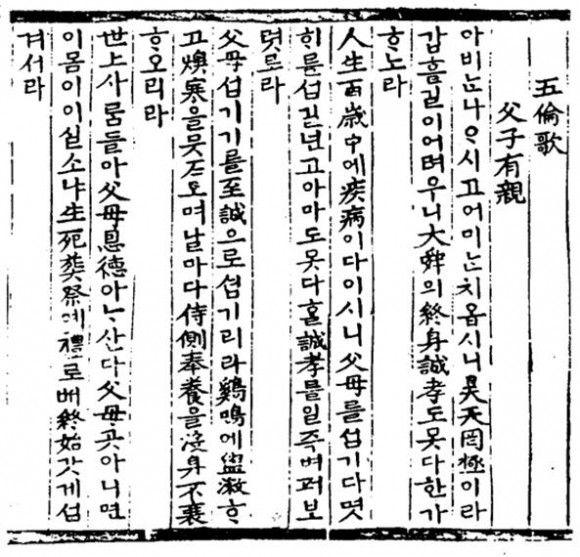 五倫歌
父子有親
아비ᄂᆞᆫ나ᄋᆞ시고어미ᄂᆞᆫ치옵시니昊天罔極이라
갑흘길이어려우니大舜의終身誠孝도못다한가
ᄒᆞ노라
人生百歲中에疾病이다이시니父母를섬기다몃
ᄒᆡ를섬길년고아마도못다ᄒᆞᆯ誠孝를일즉벼퍼보
렷로라
父母섬기기를至誠으로섬기리라鷄鳴에盥漱ᄒᆞ
고燠寒을뭇ᄌᆞ오며날마다侍側奉養을沒身不衰
ᄒᆞ오리라
世上사ᄅᆞᆷ들아父母恩德아ᄂᆞ산다父母곳아니면
이몸이이실소냐生死葬祭예禮로ᄡᅥ終始갓게섬
겨서라